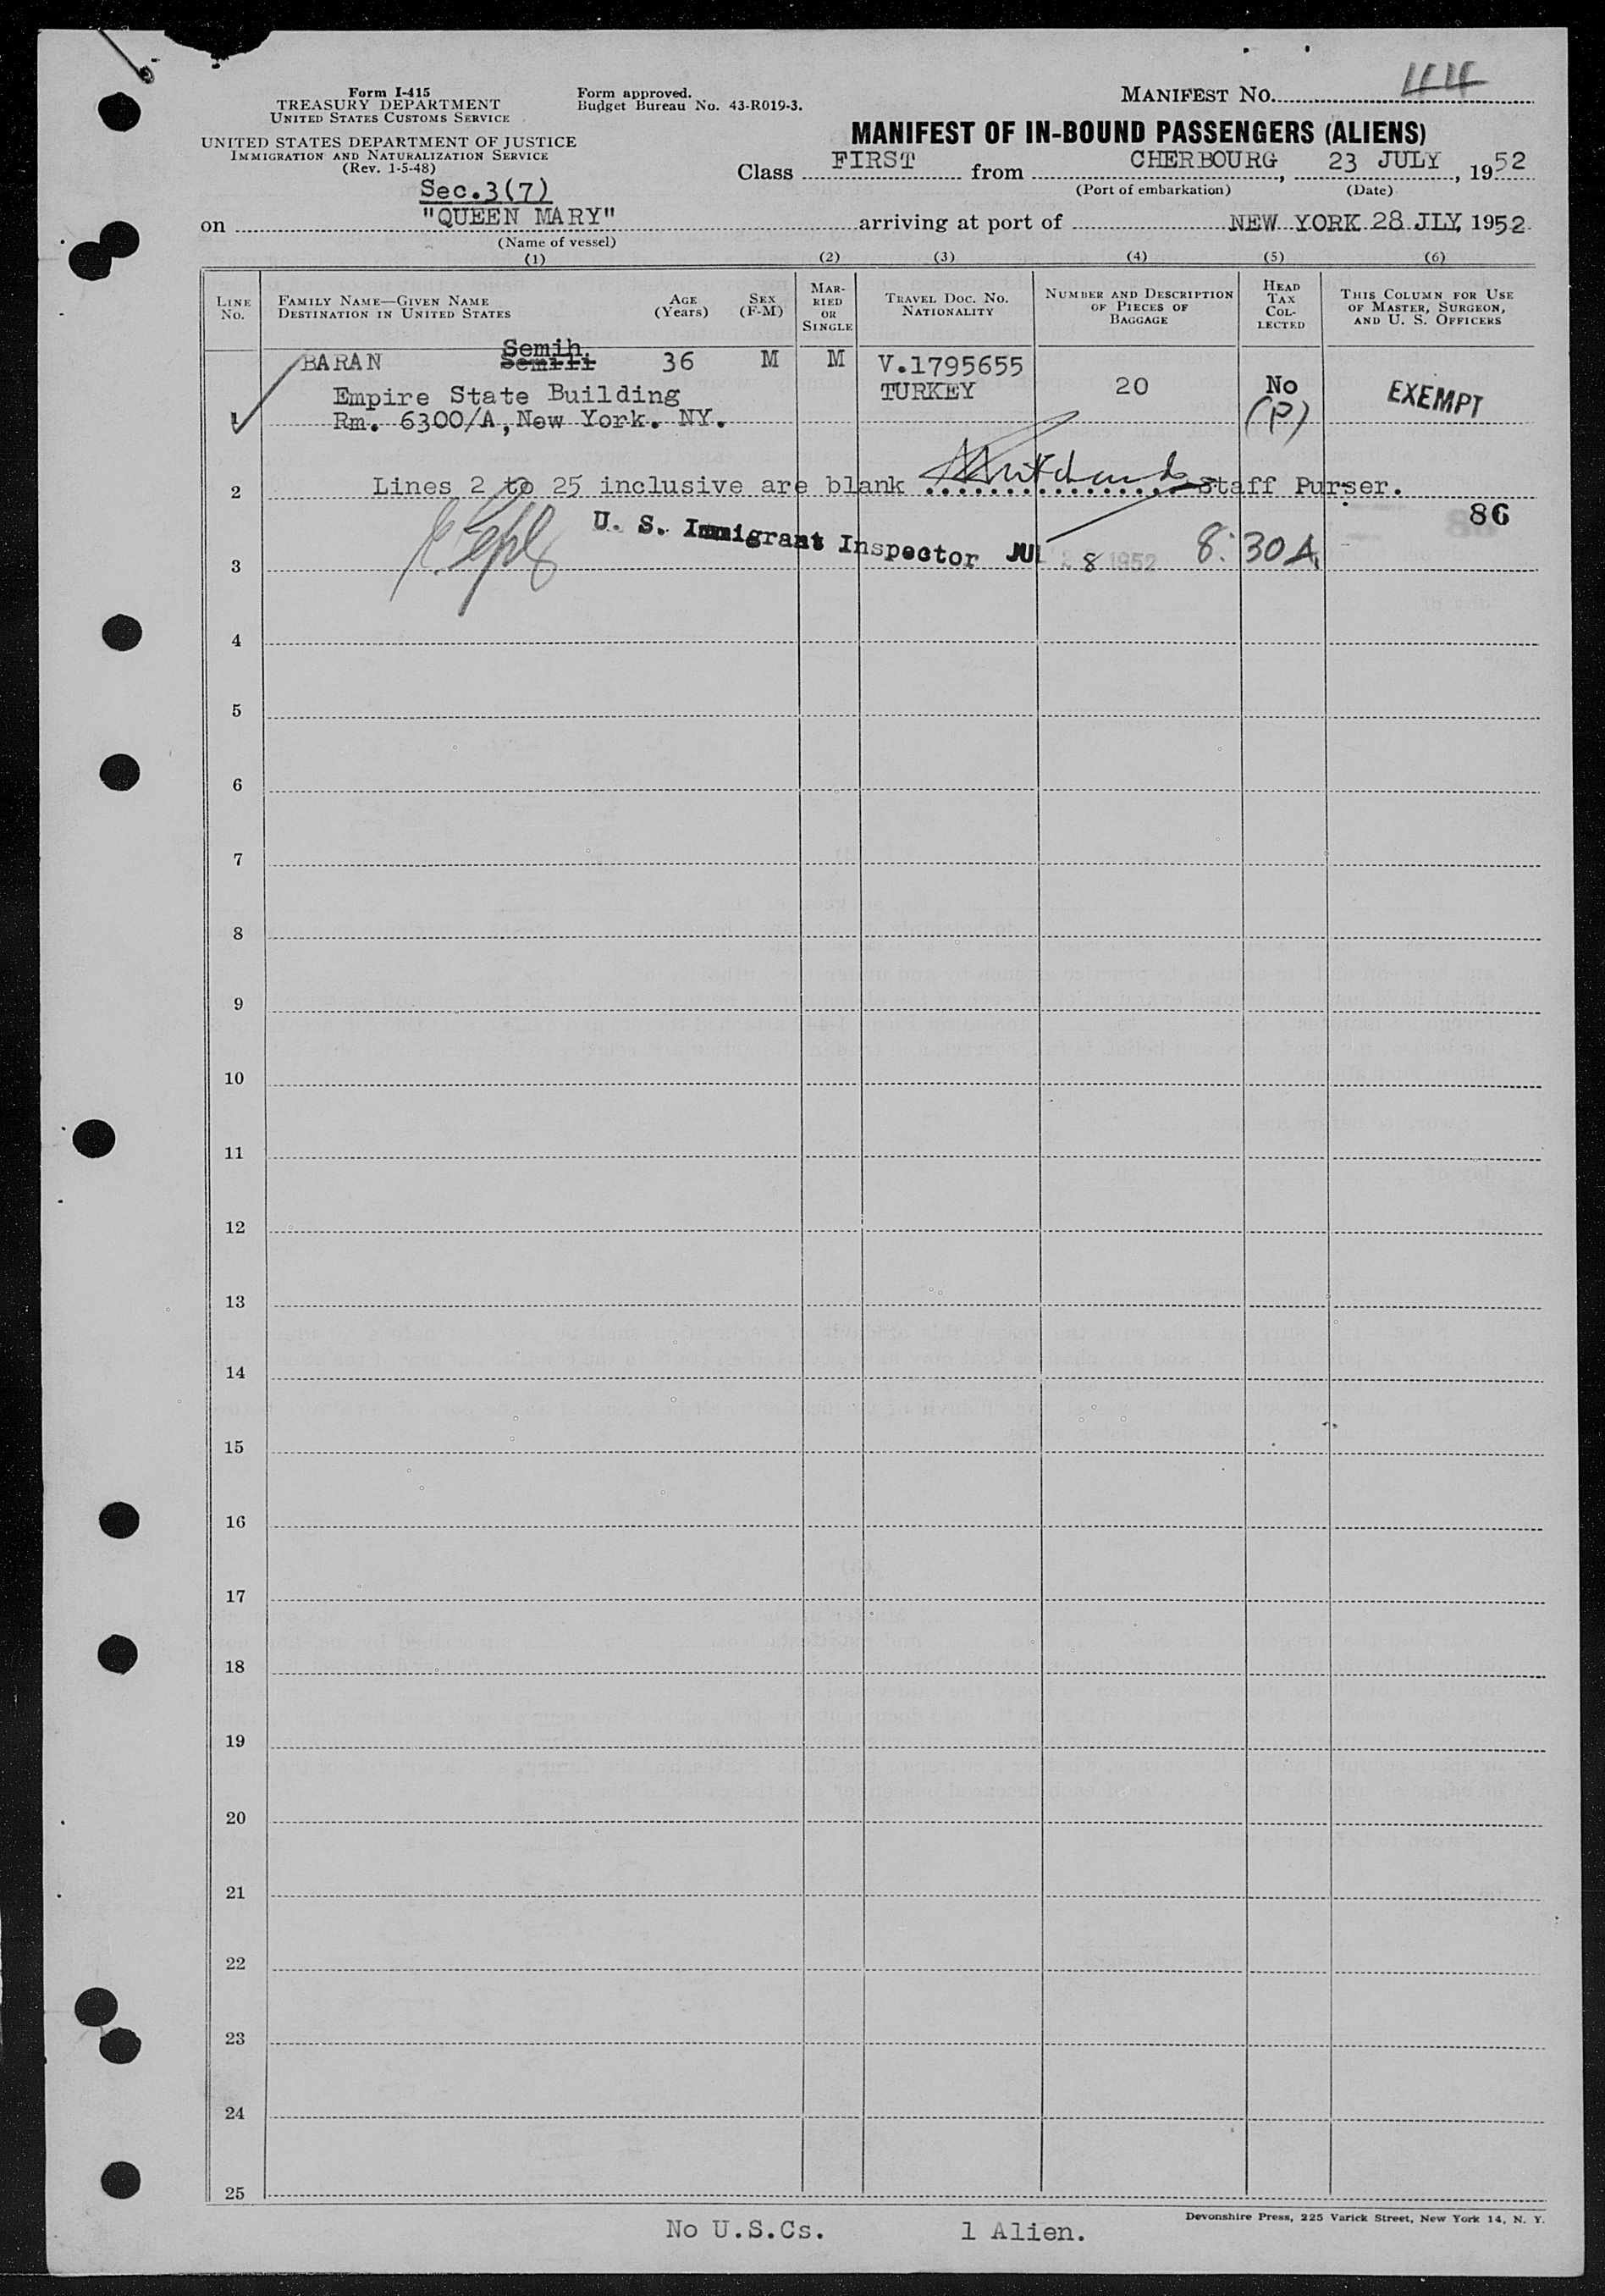 Form I-415
TREASURY DEPARTMENT
UNITED STATES CUSTOMS SERVICE
UNITED STATES DEPARTMENT OF JUSTICE
IMMIGRATION AND NATURALIZATION SERVICE
(Rev. 1-5-48)
Form approved.
Budget Bureau No. 43-R019-3.
MANIFEST NO. 44
MANIFEST OF IN-BOUND PASSENGERS (ALIENS)
Class FIRST from CHERBOURG, 23 JULY, 1952
(Port of embarkation) (Date)
Sec.3(7)
on "QUEEN MARY" arriving at port of NEW YORK 28 JLY, 1952
(Name of vessel)
(1) (2) (3) (4) (5) (6)
LINE No. FAMILY NAME—GIVEN NAME DESTINATION IN UNITED STATES AGE (Years) SEX (F-M) MARRIED OR SINGLE TRAVEL DOC. NO. NATIONALITY NUMBER AND DESCRIPTION OF PIECES OF BAGGAGE HEAD TAX COLLECTED THIS COLUMN FOR USE OF MASTER, SURGEON, AND U. S. OFFICERS
Semih
BARAN Semili 36 M M V.1795655
Empire State Building TURKEY 20 No EXEMPT
1 Rm. 6300/A, New York. NY. (P)
2 Lines 2 to 25 inclusive are blank Staff Purser.
86
U. S. Immigrant Inspector JUL 28 1952 8:30 A.
3
4
5
6
7
8
9
10
11
12
13
14
15
16
17
18
19
20
21
22
23
24
25
Devonshire Press, 225 Varick Street, New York 14, N. Y.
No U.S.Cs. 1 Alien.